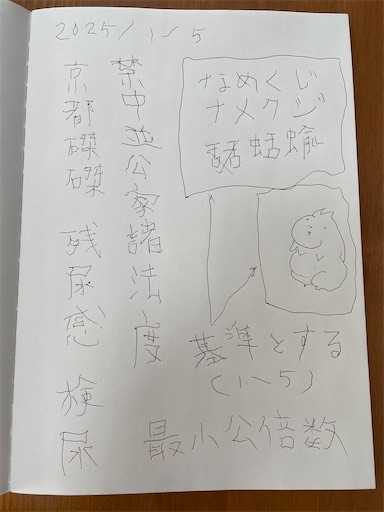 2025/1〜5
京都磔磔
残尿感
検尿
禁中並公家諸法度
なめくじ
ナメクジ
蛞蝓
基準とする
(1〜5)
最小公倍数